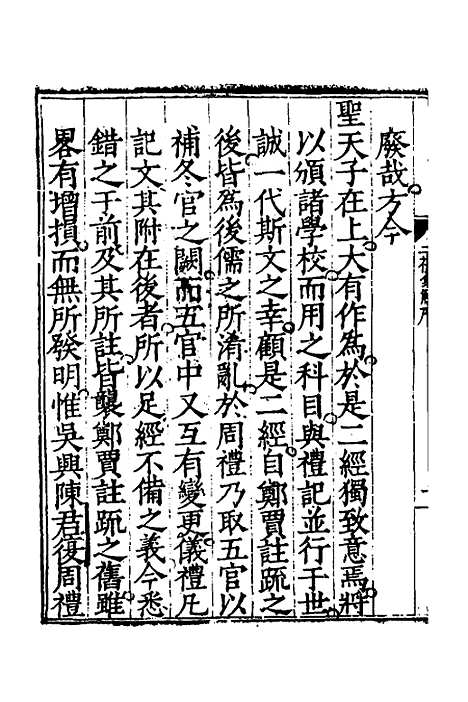 廢哉方今
聖天子在上大有作為於是二經獨致意焉將
以頒諸學校而用之科目與禮記並行于世
誠一代斯文之幸顧是二經自鄭賈註疏之
後皆為後儒之所淆亂於周禮乃取五官以
補冬官之闕而五官中又互有變更儀禮凡
記文其附在後者所以足經不備之義今悉
錯之于前及其所註皆襲鄭賈註疏之舊雖
畧有增損而無所發明惟吳興陳君復周禮
二禮集解序
二